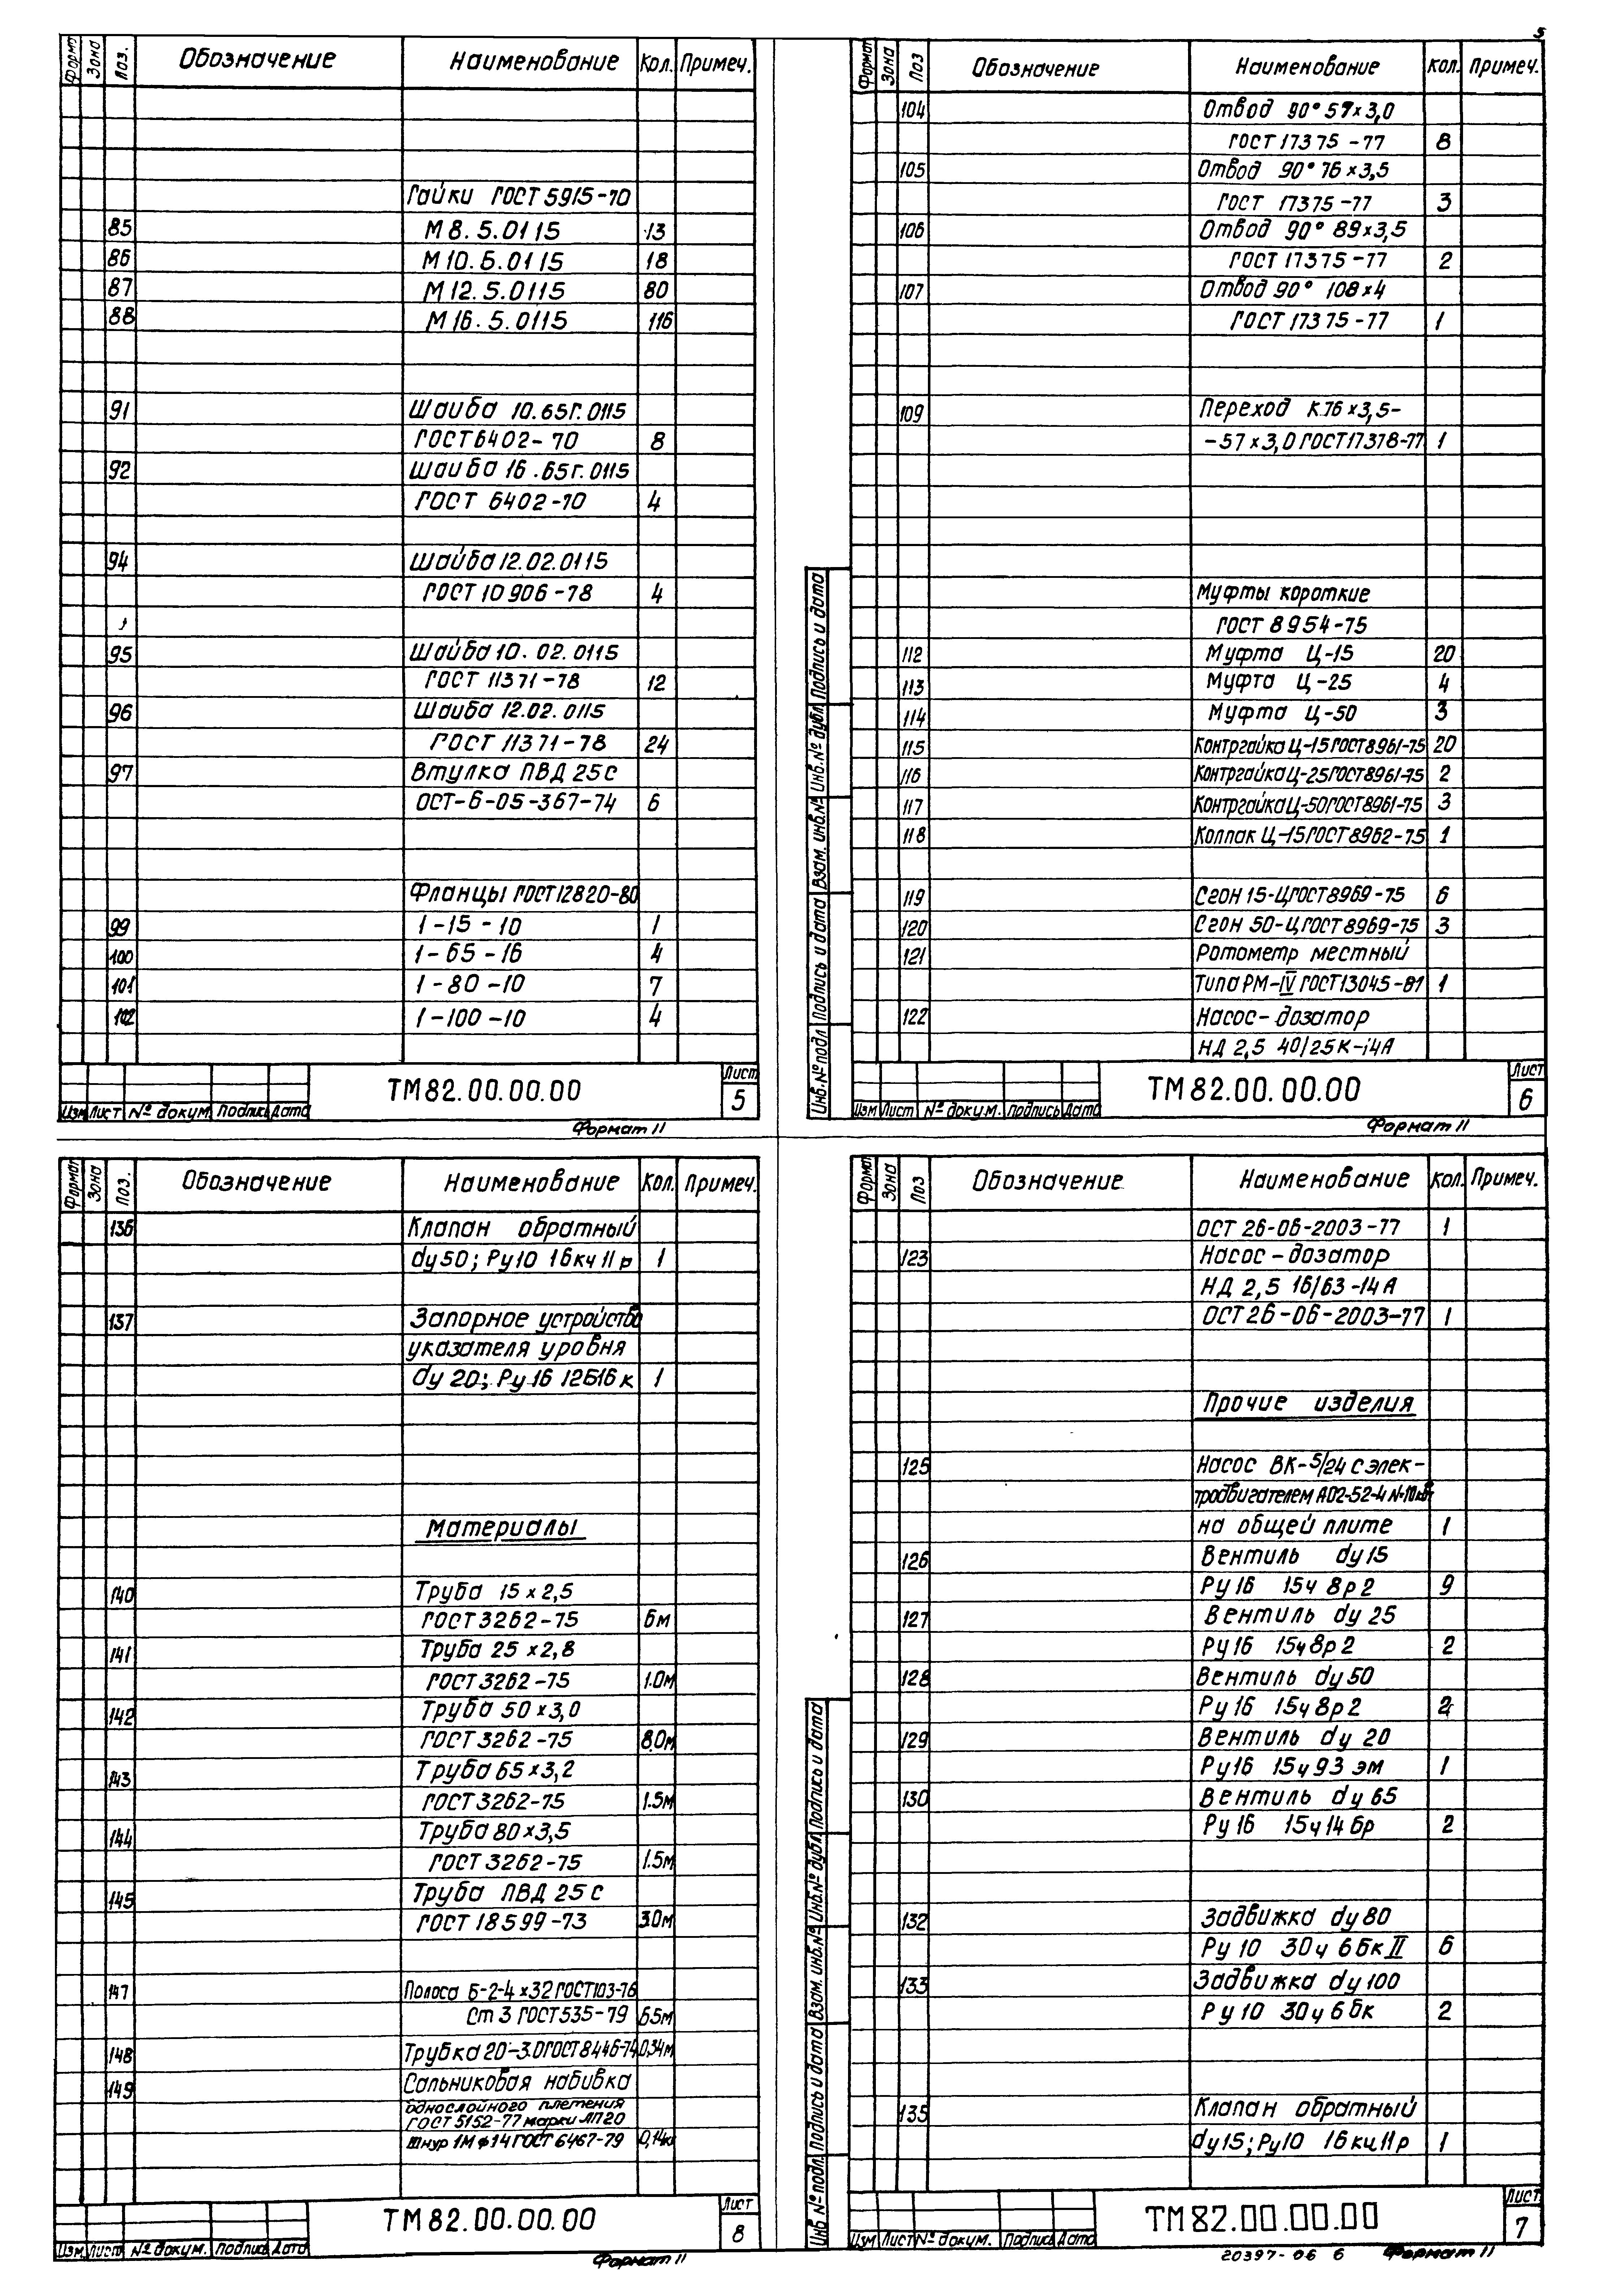 5
Формат Зона Поз. Обозначение Наименование Кол. Примеч.
Гайки ГОСТ 5915-70
85 М 8. 5. 0115 13
86 М 10. 5. 0115 18
87 М 12. 5. 0115 80
88 М 16. 5. 0115 116
91 Шайба 10. 65Г. 0115
ГОСТ 6402-70 8
92 Шайба 16. 65Г. 0115
ГОСТ 6402-70 4
94 Шайба 12. 02. 0115
ГОСТ 10906-78 4
95 Шайба 10. 02. 0115
ГОСТ 11371-78 12
96 Шайба 12. 02. 0115
ГОСТ 11371-78 24
97 Втулка ПВД 25с
ОСТ-6-05-367-74 6
Фланцы ГОСТ 12820-80
99 1-15-10 1
100 1-65-16 4
101 1-80-10 7
102 1-100-10 4
Изм Лист № докум. Подпись Дата
ТМ82.00.00.00
Лист
5
Формат 11
Формат Зона Поз Обозначение Наименование Кол. Примеч.
104 Отвод 90° 57×3,0
ГОСТ 17375-77 8
105 Отвод 90° 76×3,5
ГОСТ 17375-77 3
106 Отвод 90° 89×3,5
ГОСТ 17375-77 2
107 Отвод 90° 108×4
ГОСТ 17375-77 1
109 Переход К 76×3,5-
-57×3,0 ГОСТ 17378-77 1
Муфты короткие
ГОСТ 8954-75
112 Муфта Ц-15 20
113 Муфта Ц-25 4
114 Муфта Ц-50 3
115 Контргайка Ц-15 ГОСТ 8961-75 20
116 Контргайка Ц-25 ГОСТ 8961-75 2
117 Контргайка Ц-50 ГОСТ 8961-75 3
118 Колпак Ц-15 ГОСТ 8962-75 1
119 Сгон 15-Ц ГОСТ 8969-75 6
120 Сгон 50-Ц ГОСТ 8969-75 3
121 Ротометр местный
Типа РМ-IV ГОСТ 13045-81 1
122 Насос-дозатор
НД 2,5 40/25К-14А
Инв.№ подл Подпись и дата Взам. инв.№ Инв.№ дубл. Подпись и дата
Изм Лист № докум. Подпись Дата
ТМ82.00.00.00
Лист
6
Формат 11
Формат Зона Поз. Обозначение Наименование Кол. Примеч.
136 Клапан обратный
dу 50; Ру10 16кч11р 1
137 Запорное устройство
указателя уровня
dу 20; Ру16 12Б16к 1
Материалы
140 Труба 15×2,5
ГОСТ 3262-75 6м
141 Труба 25×2,8
ГОСТ 3262-75 1.0м
142 Труба 50×3,0
ГОСТ 3262-75 8.0м
143 Труба 65×3,2
ГОСТ 3262-75 1.5м
144 Труба 80×3,5
ГОСТ 3262-75 1.5м
145 Труба ПВД 25с
ГОСТ 18599-73 3.0м
147 Полоса Б-2-4×32 ГОСТ 103-76
Ст 3 ГОСТ 535-79 6.5м
148 Трубка 20-3.0 ГОСТ 8446-74 0,34м
149 Сальниковая набивка
однослойного плетения
ГОСТ 5152-77 марки ЛП20
Шнур 1М ф14 ГОСТ 6467-79
Изм Лист № докум. Подпись Дата
ТМ82.00.00.00
Лист
8
Формат 11
Формат Зона Поз Обозначение Наименование Кол. Примеч.
ОСТ 26-06-2003-77 1
123 Насос-дозатор
НД 2,5 16/63-14А
ОСТ 26-06-2003-77 1
Прочие изделия
125 Насос ВК-5/24 с элек-
тродвигателем АО2-52-4 N=10кВт
на общей плите 1
126 Вентиль dу15
Ру16 15ч8р2 9
127 Вентиль dу 25
Ру16 15ч8р2 2
128 Вентиль dу 50
Ру16 15ч8р2 2
129 Вентиль dу 20
Ру16 15ч93эм 1
130 Вентиль dу 65
Ру16 15ч14бр 2
132 Задвижка dу80
Ру 10 30ч 6бк II 6
133 Задвижка dу100
Ру 10 30ч6бк 2
135 Клапан обратный
dу15; Ру10 16кч11р 1
Инв № подл. Подпись и дата Взам. инв.№ Инв.№ дубл. Подпись и дата
Изм Лист № докум. Подпись Дата
ТМ82.00.00.00
Лист
7
20397-06 6 Формат 11